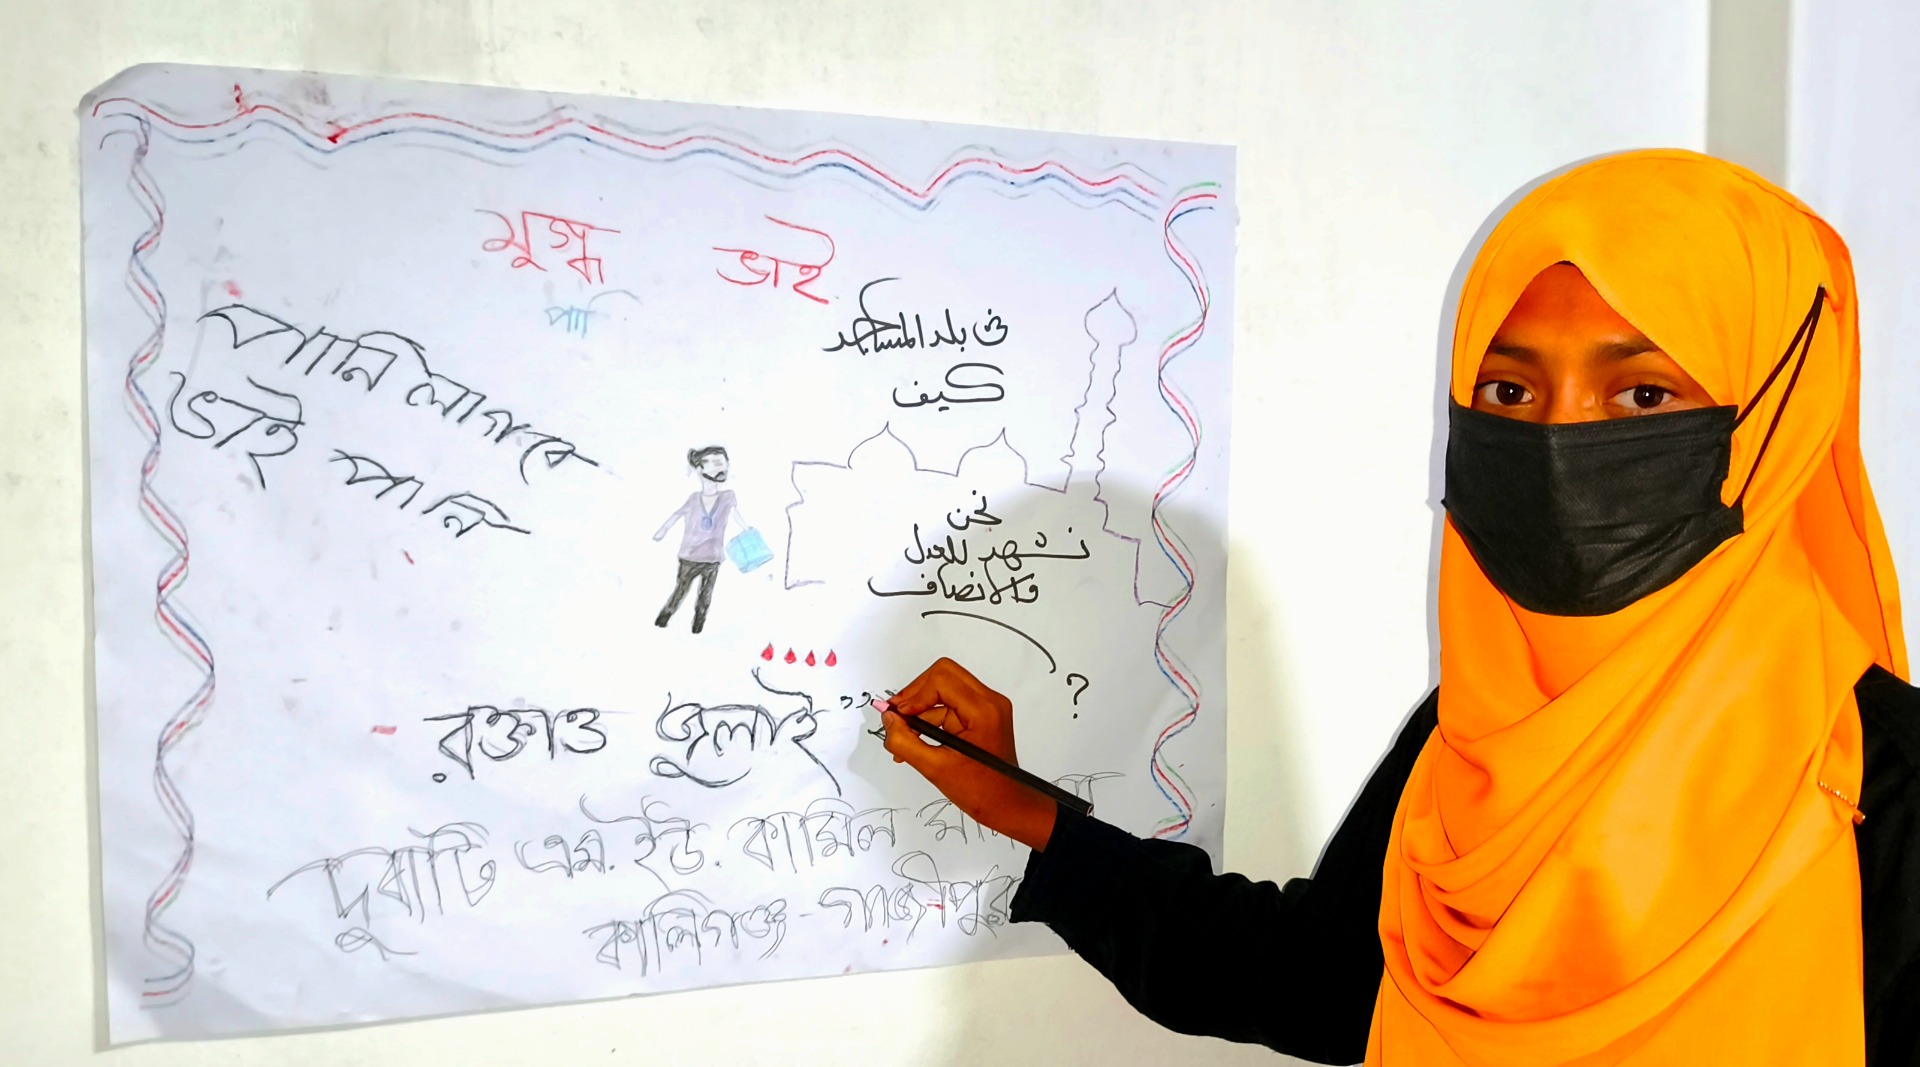 মুগ্ধ ভাই
পানি
পানি লাগবে
ভাই পানি
في بلد المساجد
كيف
نحن
نشهد للعدل
والانصاف
?
রক্তাও জুলাই
দুর্বাটি এম.ইউ. কামিল
কালিগঞ্জ-গাজীপুর